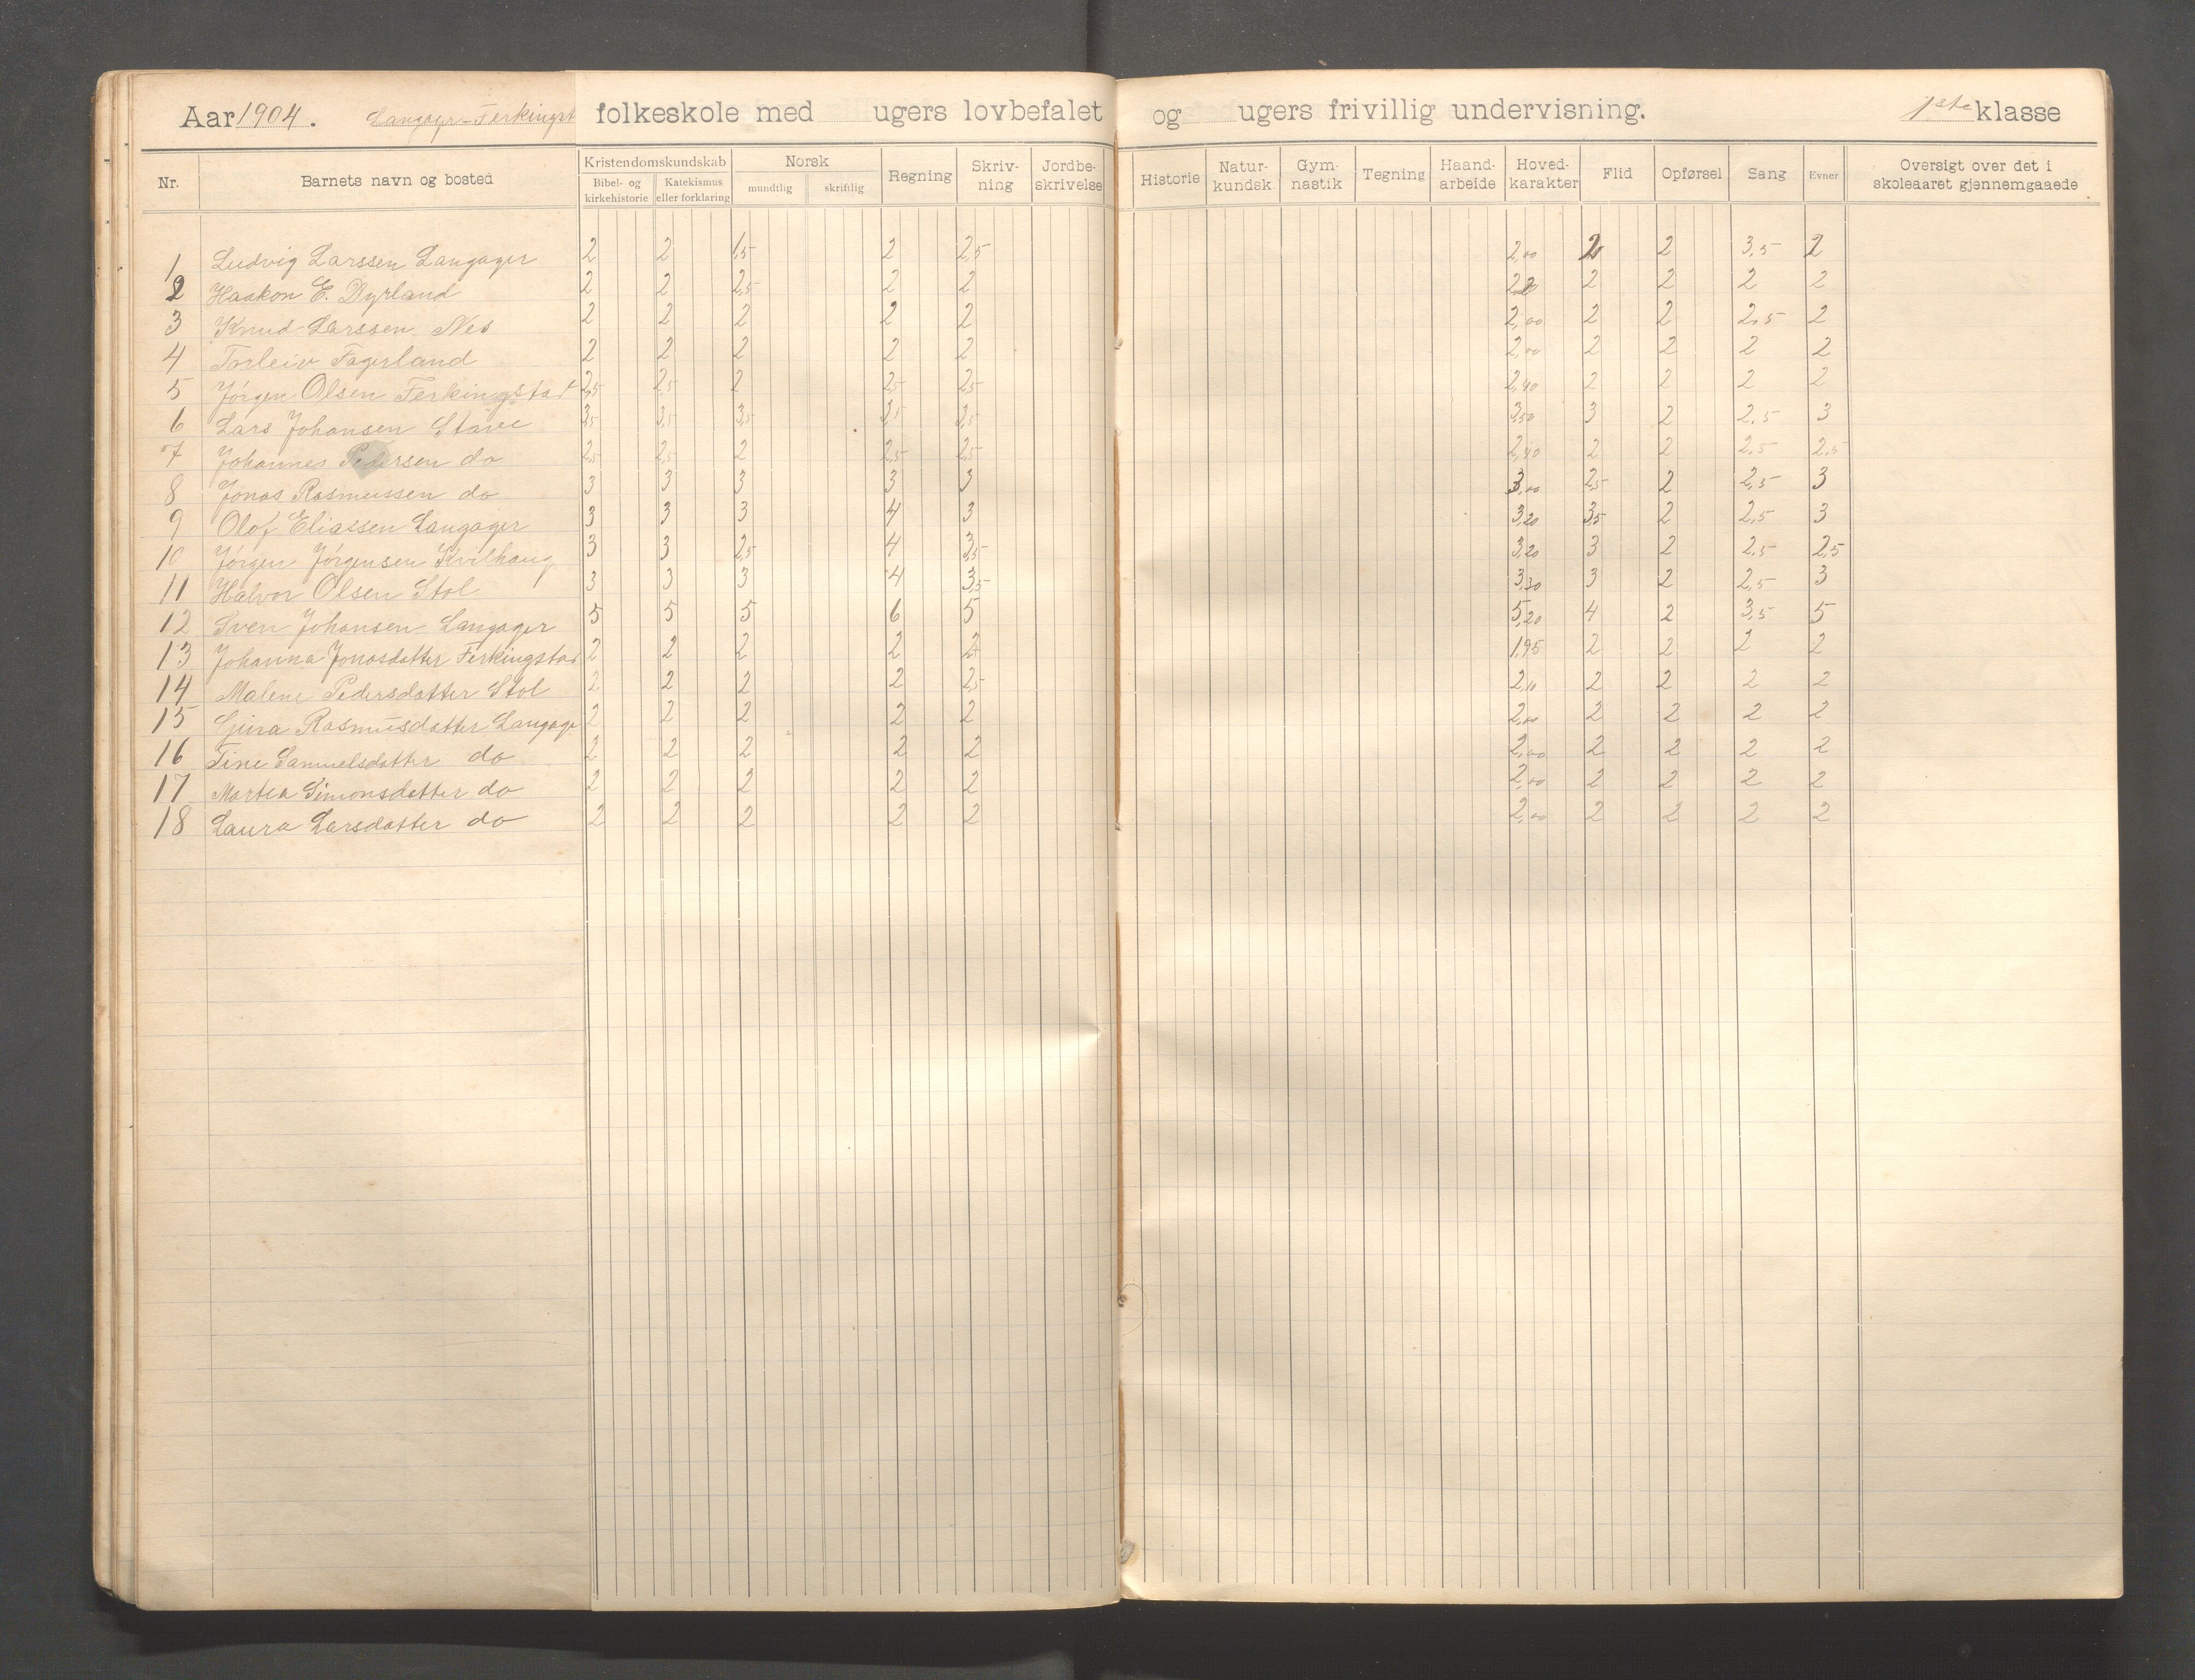 Aar 1904. Langager-Ferkingst folkeskole med ugers lovbefalet og ugers frivillig undervisning. 1ste klasse
Nr. Barnets navn og bosted Kristendomskundskab Norsk Regning Skriv-ning Jordbe-skrivelse Historie Natur-kundsk Gym-nastik Tegning Haand-arbeide Hoved-karakter Flid Opførsel Sang Evner Oversigt over det i skoleaaret gjennemgaaede.
Bibel- og kirkehistorie Katekismus eller forklaring mundtlig skriftlig
1 Ludvig Larssen Langager 2 2 1,5 2 2,5 2,00 2 2 3,5 2
2 Haakon E. Dyrland 2 2 2,5 2 2 2 2 2 2
3 Knud Larssen Nes 2 2 2 2 2 2,00 2 2 2,5 2
4 Torleiv Fagerland 2 2 2 2 2 2,00 2 2 2 2
5 Jørgen Olsen Ferkingstad 2,5 2,5 2 2,5 2,5 2,40 2 2 2 2
6 Lars Johansen Stave 3,5 3,5 3,5 3,5 3,5 3,50 3 2 2,5 3
7 Johannes Pedersen do 2,5 2,5 2 2,5 2,5 2,40 2 2 2,5 2,5
8 Jonas Rasmussen do 3 3 3 3 3 3,00 2,5 2 2,5 3
9 Olof Eliassen Langager 3 3 3 4 3 3,20 3,5 2 2,5 3
10 Jørgen Jørgensen Kvilhaug 3 3 2,5 4 3,5 3,20 3 2 2,5 2,5
11 Halvor Olsen Stol 3 3 3 4 3,5 3,30 3 2 2,5 3
12 Sven Johansen Langager 5 5 5 6 5 5,20 4 2 3,5 5
13 Johanna Jonasdatter Ferkingstad 2 2 2 2 2 1,95 2 2 2 2
14 Malene Pedersdatter Stol 2 2 2 2 2,5 2,10 2 2 2 2
15 Rasmusdatter Langage 2 2 2 2 2 2,00 2 2 2 2
16 Tine Samuelsdatter do 2 2 2 2 2 2,00 2 2 2 2
17 Martea Simonsdatter do 2 2 2 2 2 2,00 2 2 2 2
18 Laura Larsdatter do 2 2 2 2 2 2,00 2 2 2 2